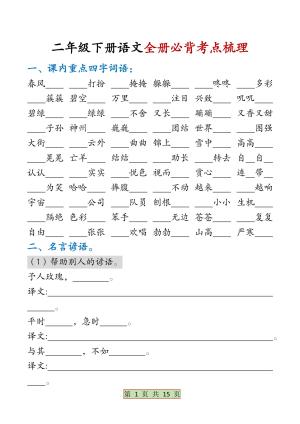 二年级下册语文全册必背考点梳理
一、课内重点四字词语：
春风____ ____打扮 ____掩掩 躲躲____ ____咚咚 ____多彩
____蓑蓑 碧空____ 万里____ 兴致____ ____致勃 ____叽叽
碧绿____ ____绿绿 ____不舍 又____ 瑞瑞____ 又香又甜
____子孙 神州____ ____巍巍 ____团结 世界____ ____图强
大街____ ____云外 ____曲曲 锦上____ 雪中____ ____高照
____晃晃 亡羊____ ____结结 ____助长 ____转去 自____自____
认认____ ____实实 ____悦色 视而____ 赏心____ 连____带____
____为笑 哈哈____ 捧腹____ ____不动 越来____ ____越响
____隔绝 色彩____ 自言____ ____无边 苍苍____ ____复复
自由____ 张张____ ____欢唱 勃勃____ 山高____ ____严寒
二、名言谚语。
（1）帮助别人的谚语。
予人玫瑰，____。
译文：____
____。
平时____，急时____。
与其____，不如____。
译文：____
____。
第 1 页 共 15 页